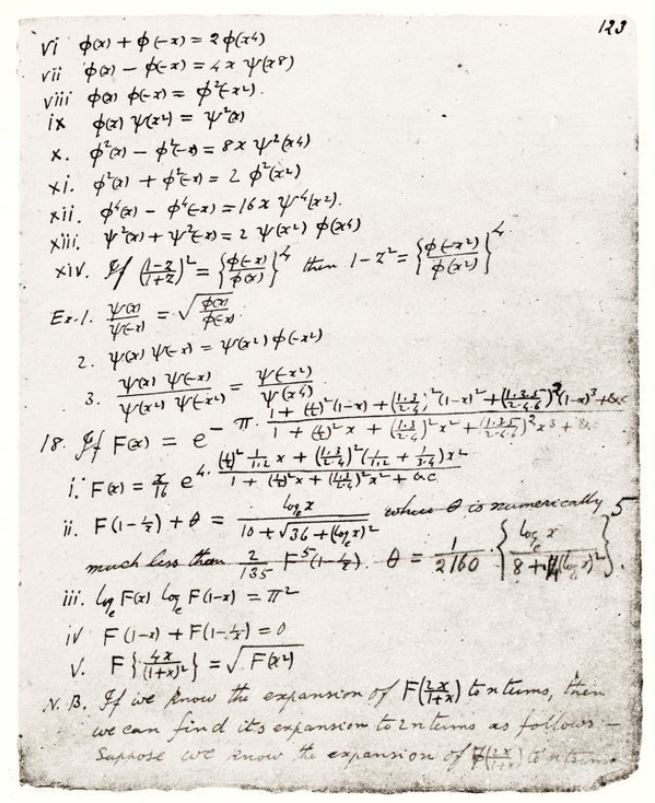 123
vi φ(x) + φ(-x) = 2φ(x⁴)
vii φ(x) - φ(-x) = 4x ψ(x⁸)
viii φ(x) φ(-x) = φ²(-x²).
ix φ(x) ψ(x²) = ψ²(x)
x. φ²(x) - φ²(-x) = 8x ψ²(x⁴)
xi. φ²(x) + φ²(-x) = 2 φ²(x²)
xii. φ⁴(x) - φ⁴(-x) = 16x ψ⁴(x²).
xiii. ψ²(x) + ψ²(-x) = 2 ψ(x²) φ(x⁴)
xiv. If ((1-z)/(1+z))² = {φ(-x)/φ(x)}⁴ then 1-z² = {φ(-x²)/φ(x²)}⁴
Ex. 1. ψ(x)/ψ(-x) = √(φ(x)/φ(-x)).
2. ψ(x) ψ(-x) = ψ(x²) φ(-x²)
3. ψ(x) ψ(-x)/ψ(x²) ψ(-x²) = ψ(-x²)/ψ(x⁴).
18. If F(x) = e^(-π · (1 + (½)²(1-x) + (1·3/2·4)²(1-x)² + (1·3·5/2·4·6)²(1-x)³ + &c)/(1 + (½)²x + (1·3/2·4)²x² + (1·3·5/2·4·6)²x³ + &c))
i. F(x) = x/16 e^(4 · ((½)² 1/1·2 x + (1·3/2·4)² (1/1·2 + 1/3·4) x²)/(1 + (½)²x + (1·3/2·4)²x² + &c))
ii. F(1-1/x) + θ = logₑx/(10 + √(36 + (logₑx)²) where θ is numerically
much less than 2/135 F⁵(1-1/x). θ = 1/2160 {logₑx/(8 + (logₑx)²)}⁵.
iii. logₑ F(x) logₑ F(1-x) = π²
iv F(1-x) + F(1-1/x) = 0
v. F{4x/(1+x)²} = √F(x²)
N.B. If we know the expansion of F(2x/(1+x)) to n terms, then
we can find its expansion to 2n terms as follows:—
Suppose we know the expansion of F(2x/(1+x)) to n terms